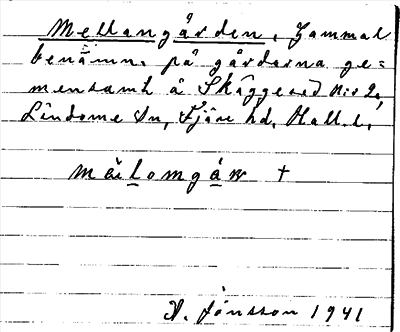 Mellangården, Gammal
benämn. på gårdarna ge=
mensamt å Skäggered Nr 2,
Lindome sn, Fjäre hd, Hall. l.
mälomgår +
A. Jönsson 1941